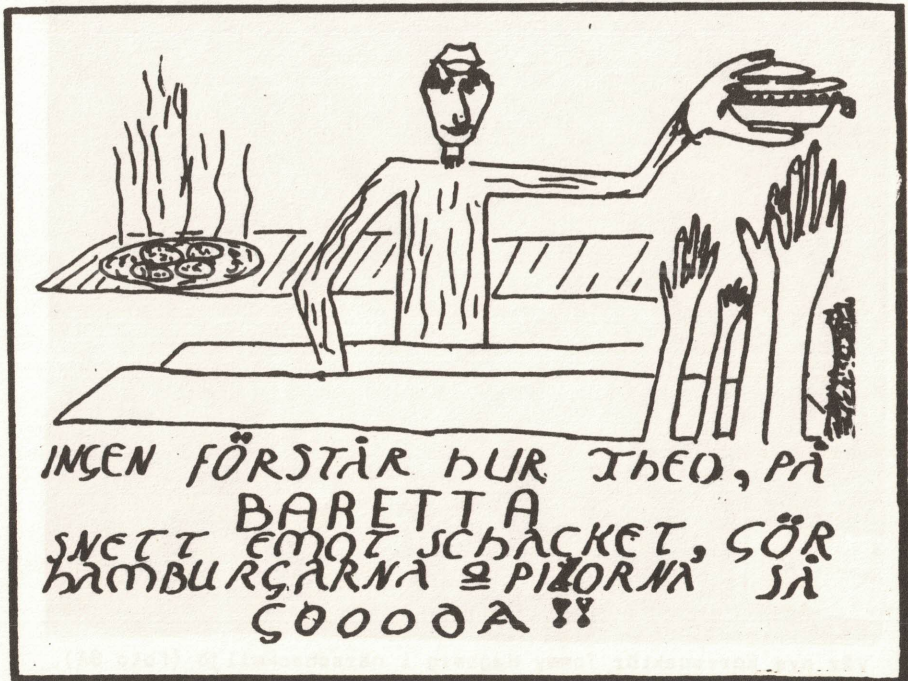 INGEN FÖRSTÅR HUR THEO, PÅ
BARETTA
SNETT EMOT SCHACKET, GÖR
HAMBURGARNA O PIZORNA SÅ
GOOODA !!